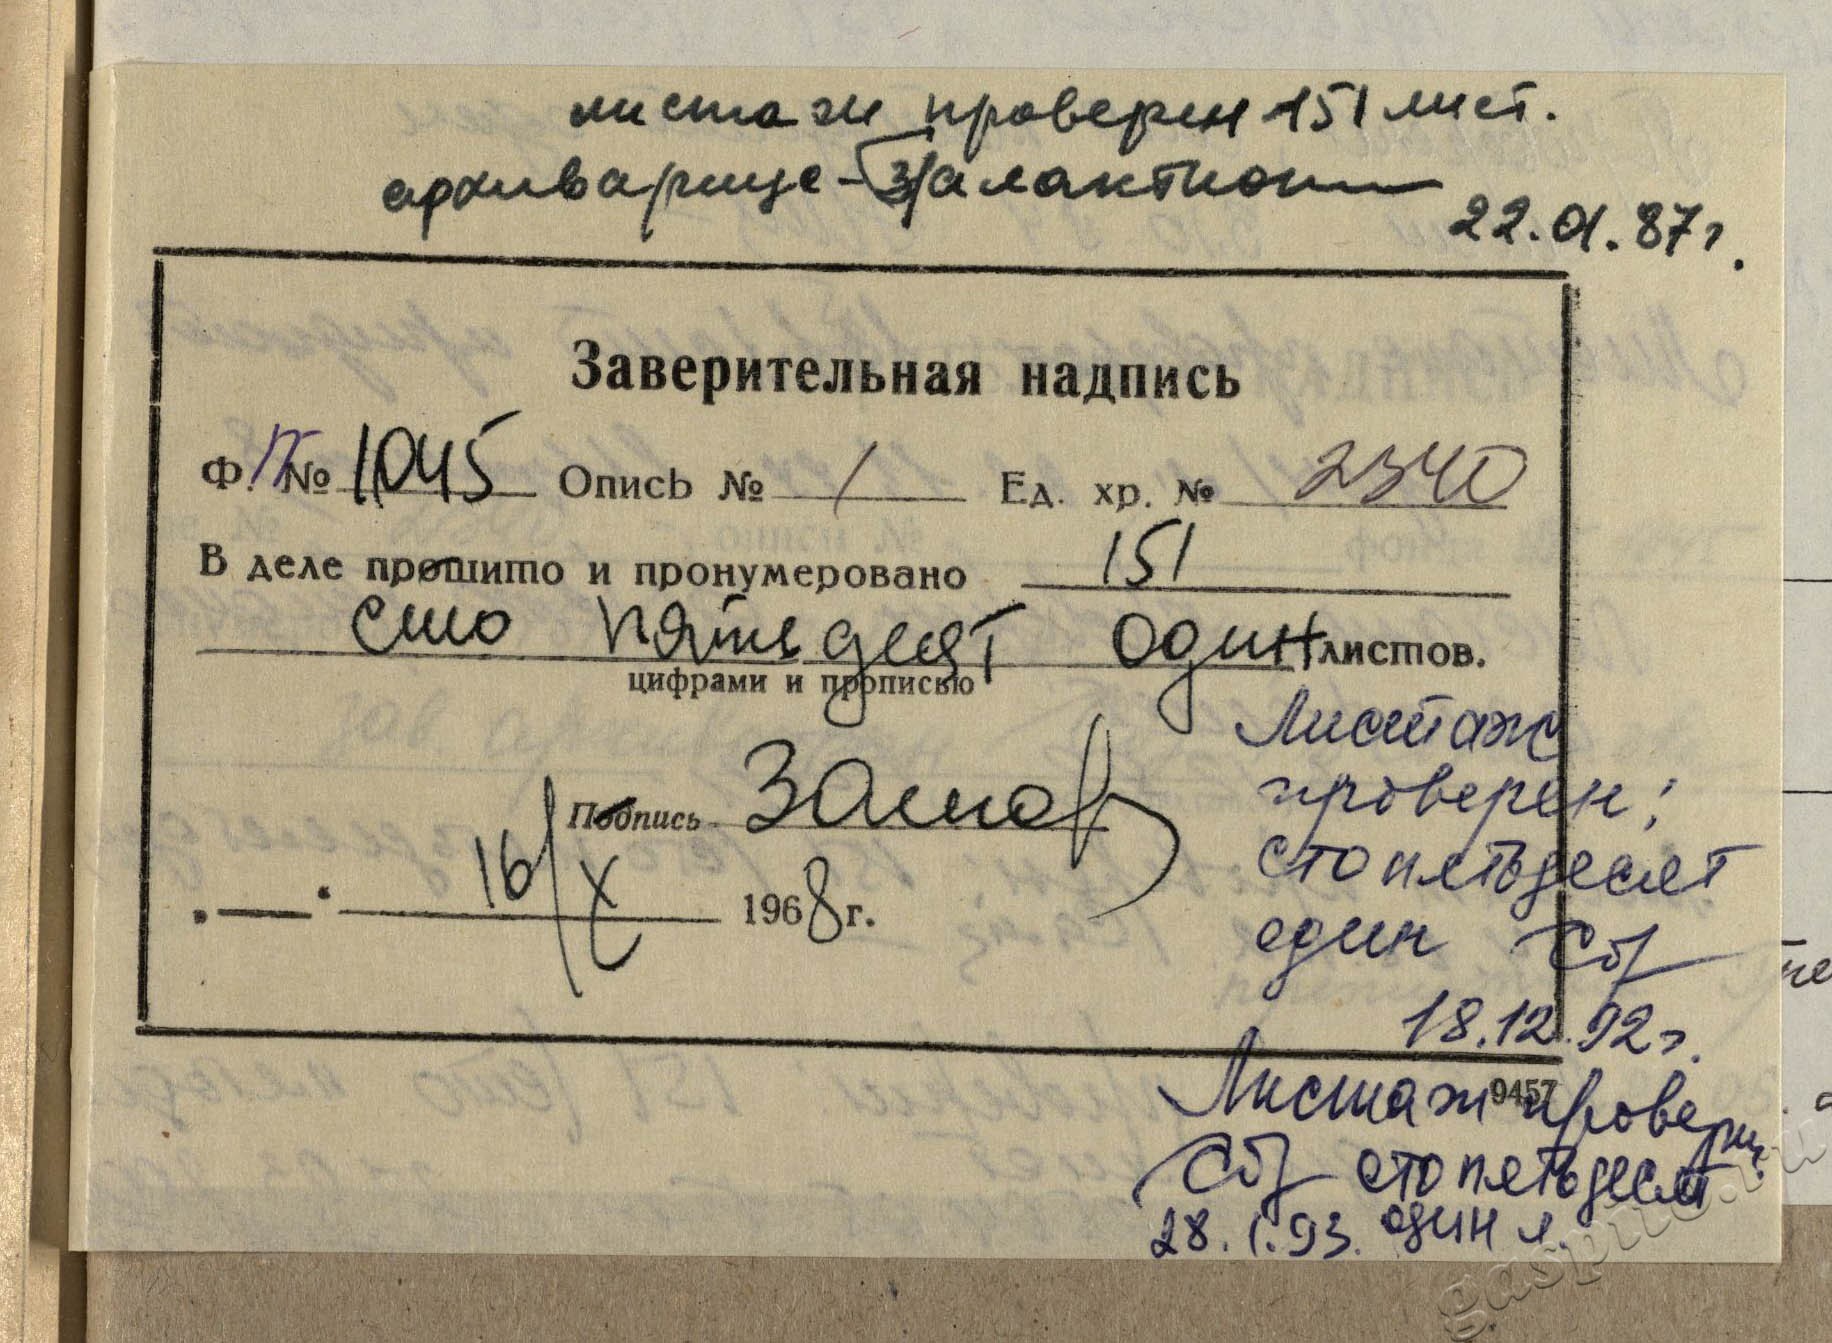 листаж проверен 151 лист.
архиварище-
22.01.87г.
Заверительная надпись
Ф. П № 1045 Опись № 1 Ед. хр. № 2340
В деле прошито и пронумеровано 151
сто пятьдесят один листов.
цифрами и прописью
Подпись
16/X 1968 г.
Листаж
проверен:
сто пятьдесят
один
18.12.92г.
9457
Листаж проверен
сто пятьдесят
28.1.93. один л.
gaspito.ru